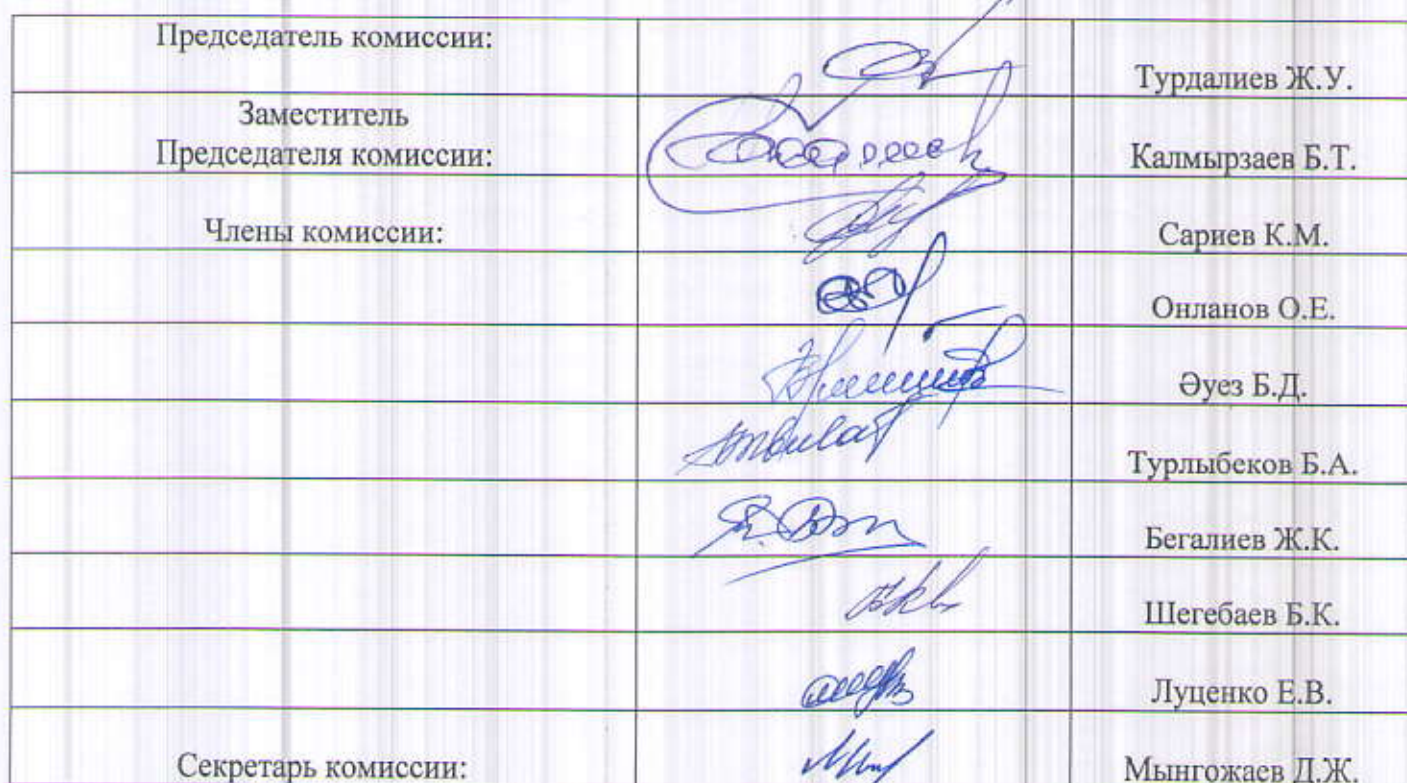 Председатель комиссии:
Турдалиев Ж.У.
Заместитель
Председателя комиссии:
Калмырзаев Б.Т.
Члены комиссии:
Сариев К.М.
Онланов О.Е.
Әуез Б.Д.
Турлыбеков Б.А.
Бегалиев Ж.К.
Шегебаев Б.К.
Луценко Е.В.
Секретарь комиссии:
Мынгожаев Д.Ж.